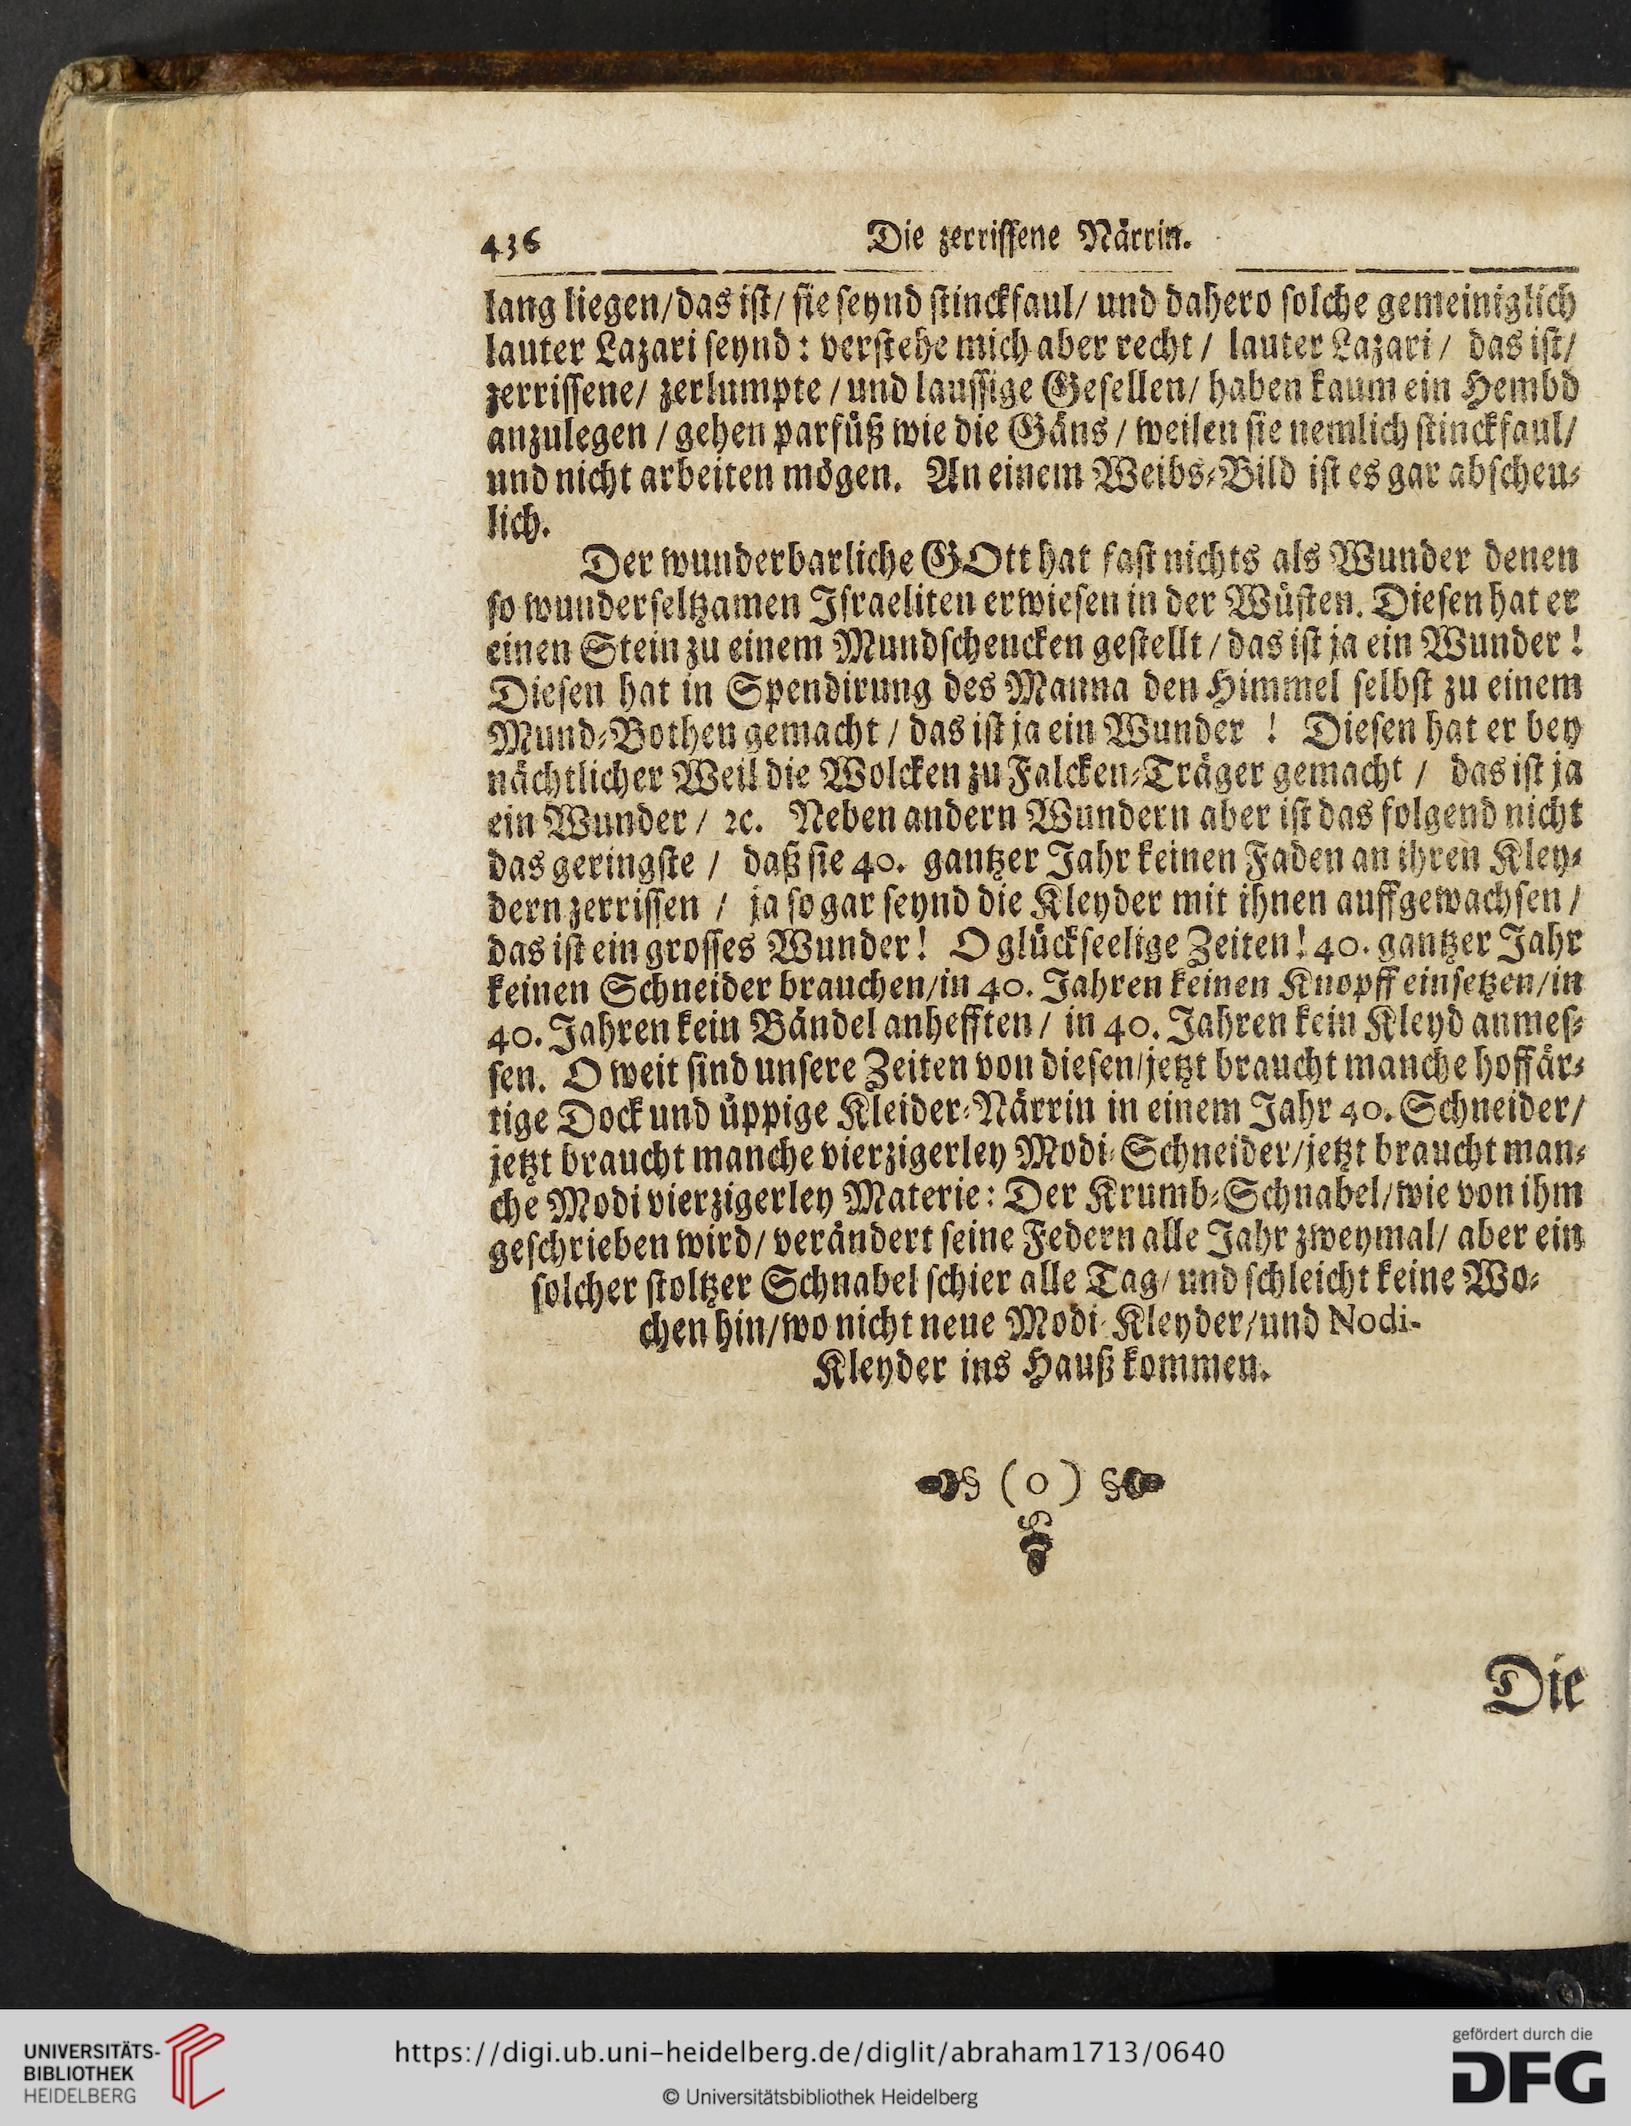 436 Die zerrissene Närrin.
lang liegen/ das ist/ sie seynd stinckfaul/ und dahero solche gemeiniglich
lauter Lazari seynd: verstehe mich aber recht / lauter Lazari / das ist/
zerrissene/ zerlumpte / und laussige Gesellen/ haben kaum ein Hembd
anzulegen / gehen parfüß wie die Gäns / weilen sie nemlich stinckfaul/
und nicht arbeiten mögen. An einem Weibs-Bild ist es gar abscheu-
lich.
Der wunderbarliche GOtt hat fast nichts als Wunder denen
so wunderseltzamen Israeliten erwiesen in der Wüsten. Diesen hat er
einen Stein zu einem Mundschencken gestellt / das ist ja ein Wunder!
Diesen hat in Spendirung des Manna den Himmel selbst zu einem
Mund-Bothen gemacht / das ist ja ein Wunder ! Diesen hat er bey
nächtlicher Weil die Wolcken zu Falcken-Träger gemacht / das ist ja
ein Wunder / ꝛc. Neben andern Wundern aber ist das folgend nicht
das geringste / daß sie 40. gantzer Jahr keinen Faden an ihren Kley-
dern zerrissen / ja so gar seynd die Kleyder mit ihnen auffgewachsen /
das ist ein grosses Wunder! O glückseelige Zeiten! 40. gantzer Jahr
keinen Schneider brauchen/in 40. Jahren keinen Knopff einsetzen/in
40. Jahren kein Bändel anhefften / in 40. Jahren kein Kleyd anmes-
sen. O weit sind unsere Zeiten von diesen/jetzt braucht manche hoffär-
tige Dock und üppige Kleider-Närrin in einem Jahr 40. Schneider/
jetzt braucht manche vierzigerley Modi-Schneider/jetzt braucht man-
che Modi vierzigerley Materie: Der Krumb-Schnabel/wie von ihm
geschrieben wird/ verändert seine Federn alle Jahr zweymal/ aber ein
solcher stoltzer Schnabel schier alle Tag/ und schleicht keine Wo-
chen hin/wo nicht neue Modi-Kleyder/und Nodi-
Kleyder ins Hauß kommen.
§ (o) §
Die
UNIVERSITÄTS-
BIBLIOTHEK
HEIDELBERG
https://digi.ub.uni-heidelberg.de/diglit/abraham1713/0640
© Universitätsbibliothek Heidelberg
gefördert durch die
DFG